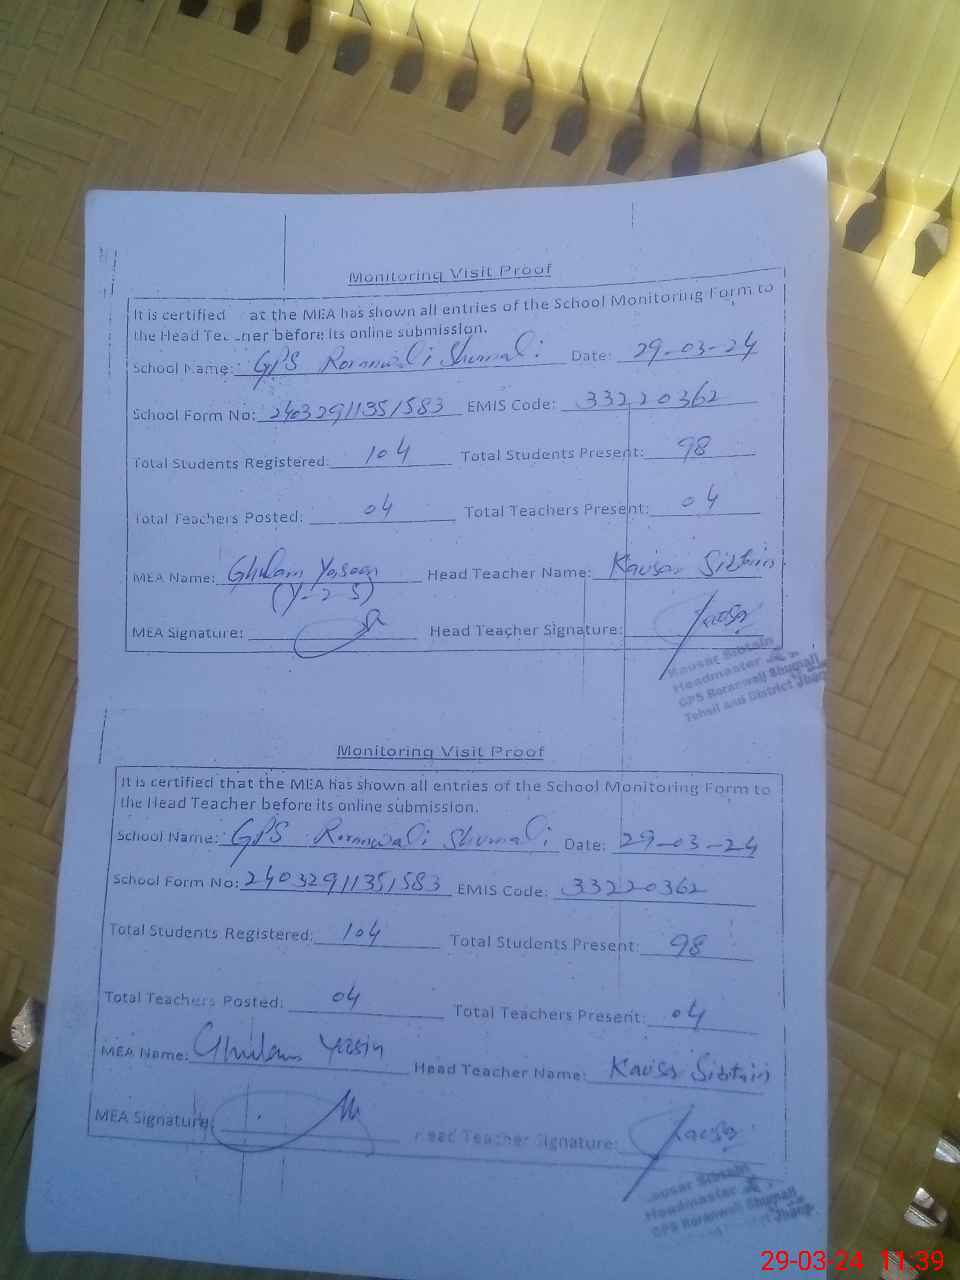 Monitoring Visit Proof
It is certified at the MEA has shown all entries of the School Monitoring Form to
the Head Te ner before its online submission.
School Name: GPS Roranwali Shumali Date: 29-03-24
School Form No: 24032911351583 EMIS Code: 33220362
Total Students Registered: 104 Total Students Present: 98
Total Teachers Posted: 04 Total Teachers Present: 04
MEA Name: Ghulam Yaseen Head Teacher Name: Kausar Sibtain
(Y-2-5)
MEA Signature: Head Teacher Signature: Kausar
Kausar Sibtain
Headmaster
GPS Roranwali Shumali
Tehsil and District Jhang
Monitoring Visit Proof
It is certified that the MEA has shown all entries of the School Monitoring Form to
the Head Teacher before its online submission.
School Name: GPS Roranwali Shumali Date: 29-03-24
School Form No: 24032911351583 EMIS Code: 33220362
Total Students Registered: 104 Total Students Present: 98
Total Teachers Posted: 04 Total Teachers Present: 04
MEA Name: Ghulam Yasin Head Teacher Name: Kausar Sibtain
MEA Signature: Head Teacher Signature: Kausar
Kausar Sibtain
Headmaster
GPS Roranwali Shumali
District Jhang
29-03-24 11:39